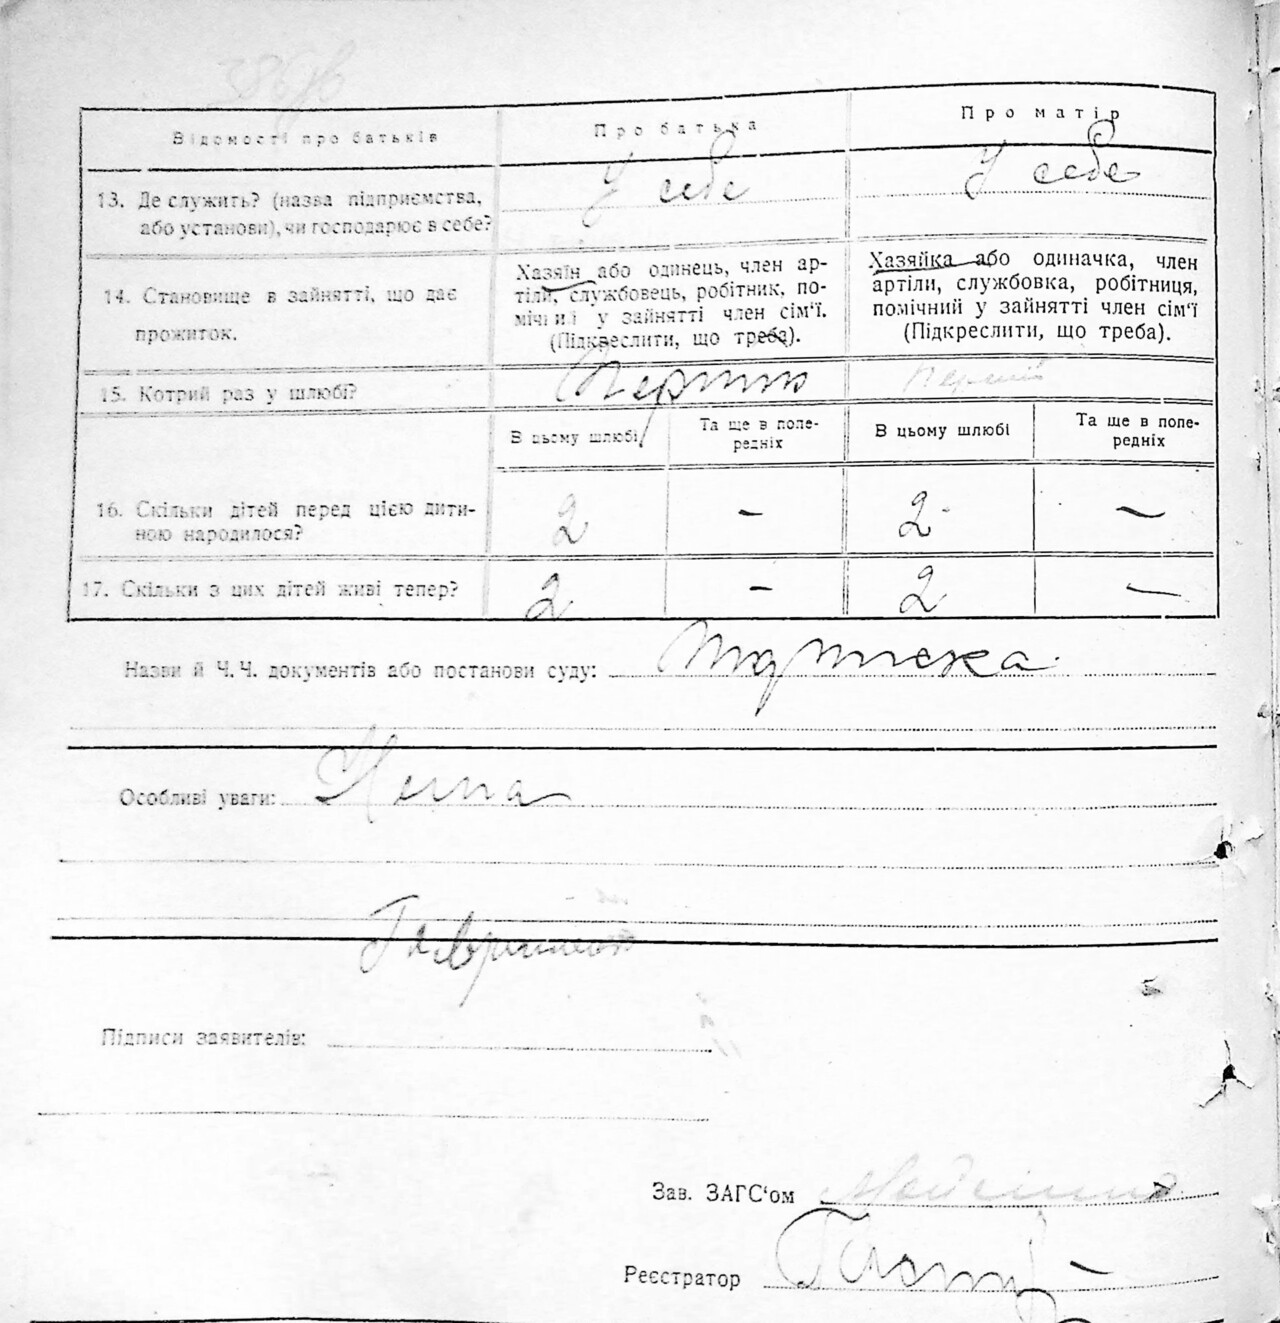 Відомості про батьків
Про батька
Про матір
13. Де служить? (назва підприємства,
або установи), чи господарює в себе?
У себе
У себе
14. Становище в зайнятті, що дає
прожиток.
Хазяїн або одинець, член ар-
тіли, службовець, робітник, по-
мічний у зайнятті член сім'ї.
(Підкреслити, що треба).
Хазяйка або одиначка, член
артіли, службовка, робітниця,
помічний у зайнятті член сім'ї
(Підкреслити, що треба).
15. Котрий раз у шлюбі?
Перший
Перший
В цьому шлюбі
Та ще в попе-
редніх
В цьому шлюбі
Та ще в попе-
редніх
16. Скільки дітей перед цією дити-
ною народилося?
2 - 2 -
17. Скільки з цих дітей живі тепер?
2 - 2 -
Назви й Ч.Ч. документів або постанови суду:
Особливі уваги: Нема
Підписи заявителів:
Зав. ЗАГС'ом
Реєстратор